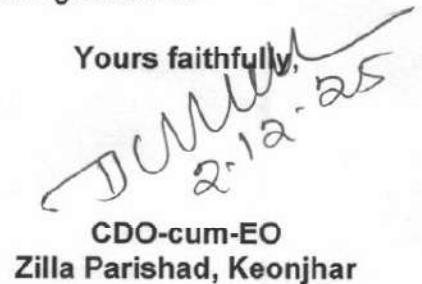 Yours faithfully,
2.12.25
CDO-cum-EO
Zilla Parishad, Keonjhar